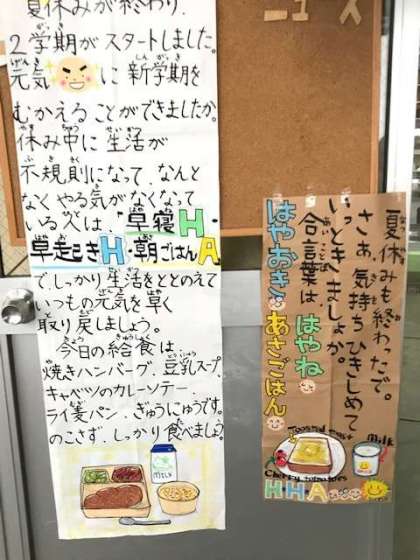 夏休みが終わり、
2学期がスタートしました。
元気に新学期を
むかえることができましたか。
休み中に生活が
不規則になって、なんと
なくやる気がなくなって
いる人は、「早寝H・
早起きH・朝ごはんA」
でしっかり生活をととのえて
いつもの元気を早く
取り戻しましょう。
今日の給食は、
焼きハンバーグ、豆乳スープ、
キャベツのカレーソテー、
ライ麦パン、ぎゅうにゅうです。
のこさず、しっかり食べましょう。
milk
ニュース
夏休みも終わったで。
さぁ、気持ちひきしめて
いっときましょか。
合言葉は、はやね
はやおき あさごはん
Toast
milk
Cherry tomatoes
HHA